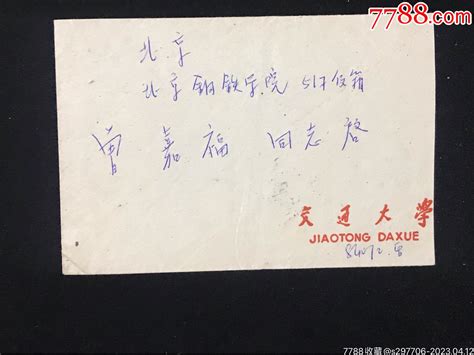 7788.com
北京
北京钢铁学院 517信箱
曾嘉福 同志启
交通大學
JIAOTONG DAXUE
7788收藏@s297706-2023.04.12